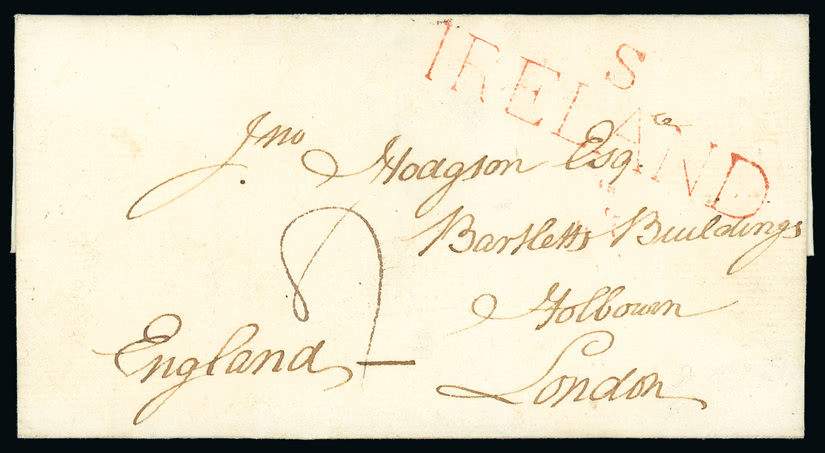 S
IRELAND
Jno Hodgson Esqre
Bartletts Buildings
Holbourn
England
London